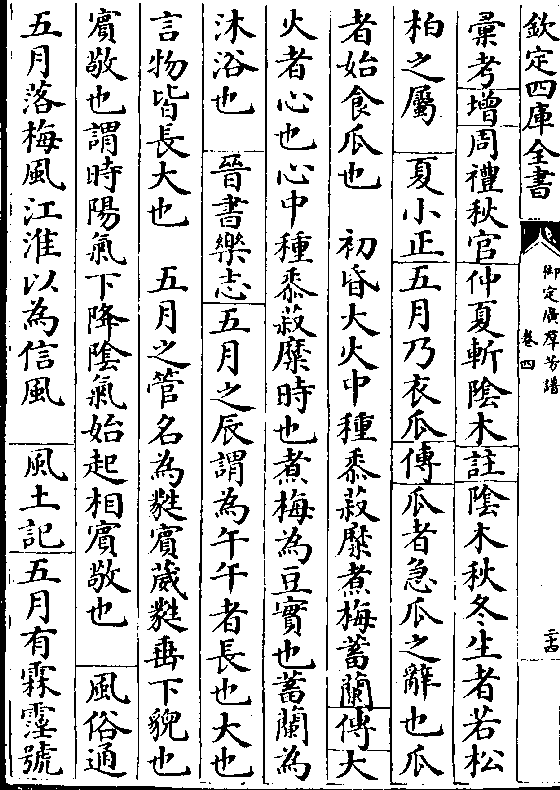 欽定四庫全書
御定廣羣芳譜
卷四
彚考增周禮秋官仲夏斬陰木註陰木秋冬生者若松
柏之屬 夏小正五月乃衣瓜傳瓜者急瓜之辭也瓜
者始食瓜也 初昏大火中種黍菽糜煮梅蓄蘭傳大
火者心也心中種黍菽糜時也煮梅為豆實也蓄蘭為
沐浴也 晉書樂志五月之辰謂為午午者長也大也
言物皆長大也 五月之管名為蕤賓葳蕤垂下貌也
賓敬也謂時陽氣下降陰氣始起相賓敬也 風俗通
五月落梅風江淮以為信風 風土記五月有霖霪號